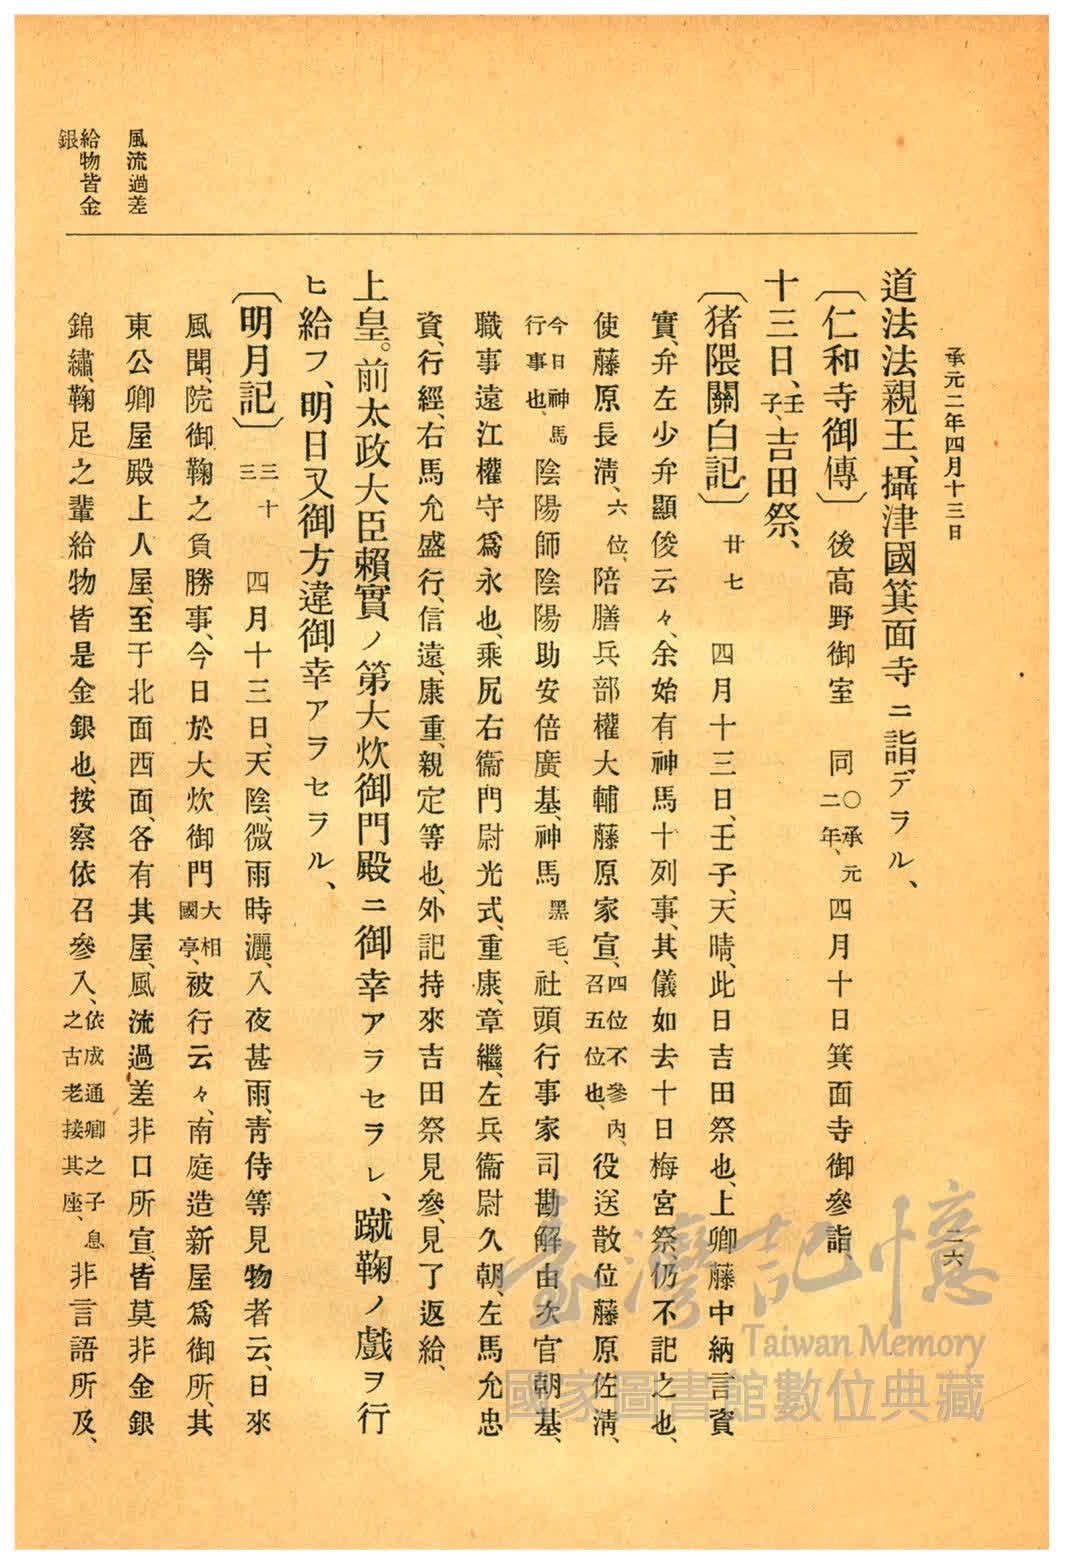 承元二年四月十三日
二六
道法法親王、攝津國箕面寺ニ詣デラル、
〔仁和寺御傳〕 後高野御室 同〇承元二年、四月十日箕面寺御參詣、
十三日、壬子、吉田祭、
〔猪隈關白記〕 廿七 四月十三日、壬子、天晴、此日吉田祭也、上卿藤中納言資
實、弁左少弁顯俊云々、余始有神馬十列事、其儀如去十日梅宮祭、仍不記之也、
使藤原長淸、六位、陪膳兵部權大輔藤原家宣、四位不參內、召五位也、役送散位藤原佐淸、
今日神馬行事也、陰陽師陰陽助安倍廣基、神馬黑毛、社頭行事家司勘解由次官朝基、
職事遠江權守爲永也、乘尻右衞門尉光式、重康、章繼、左兵衞尉久朝、左馬允忠
資、行經、右馬允盛行、信遠、康重、親定等也、外記持來吉田祭見參、見了返給、
上皇。前太政大臣賴實ノ第大炊御門殿ニ御幸アラセラレ、蹴鞠ノ戲ヲ行
ヒ給フ、明日又御方違御幸アラセラル、
〔明月記〕 三十三 四月十三日、天陰、微雨時灑、入夜甚雨、靑侍等見物者云、日來
風聞、院御鞠之負勝事、今日於大炊御門大相國亭、被行云々、南庭造新屋爲御所、其
東公卿屋殿上人屋、至于北面西面、各有其屋、風流過差非口所宣、皆莫非金銀
錦繡、鞠足之輩給物皆是金銀也、按察依召參入、依成通卿之子息之古老接其座、非言語所及、
風流過差
給物皆金
銀
臺灣記憶
Taiwan Memory
國家圖書館數位典藏